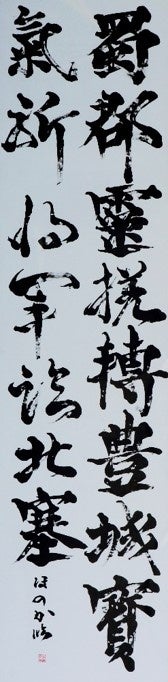 蜀郡靈槎轉豊城寶
氣新將軍臨北塞
ほのか臨